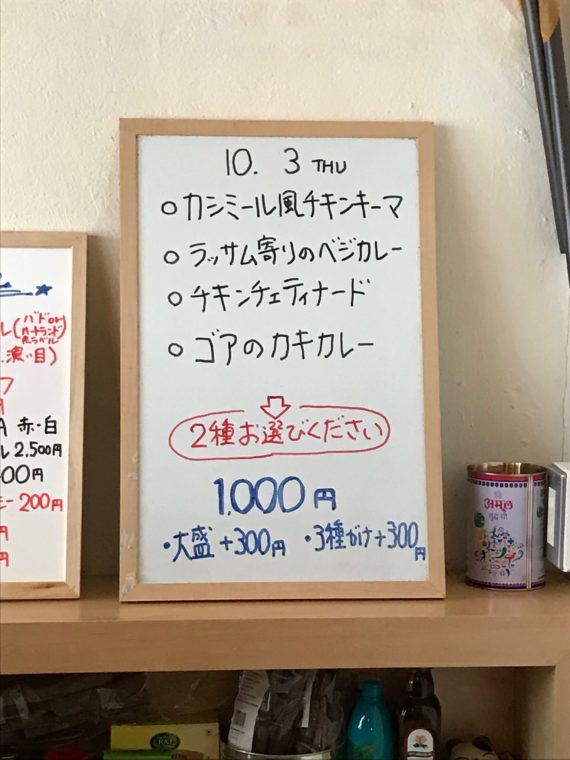 10. 3 THU
○カシミール風チキンキーマ
○ラッサム寄りのベジカレー
○チキンチェティナード
○ゴアのカキカレー
2種お選びください
1,000円
・大盛+300円 ・3種がけ+300円
赤・白
2,500円
00円
200円
अमूल
शुद्ध घी